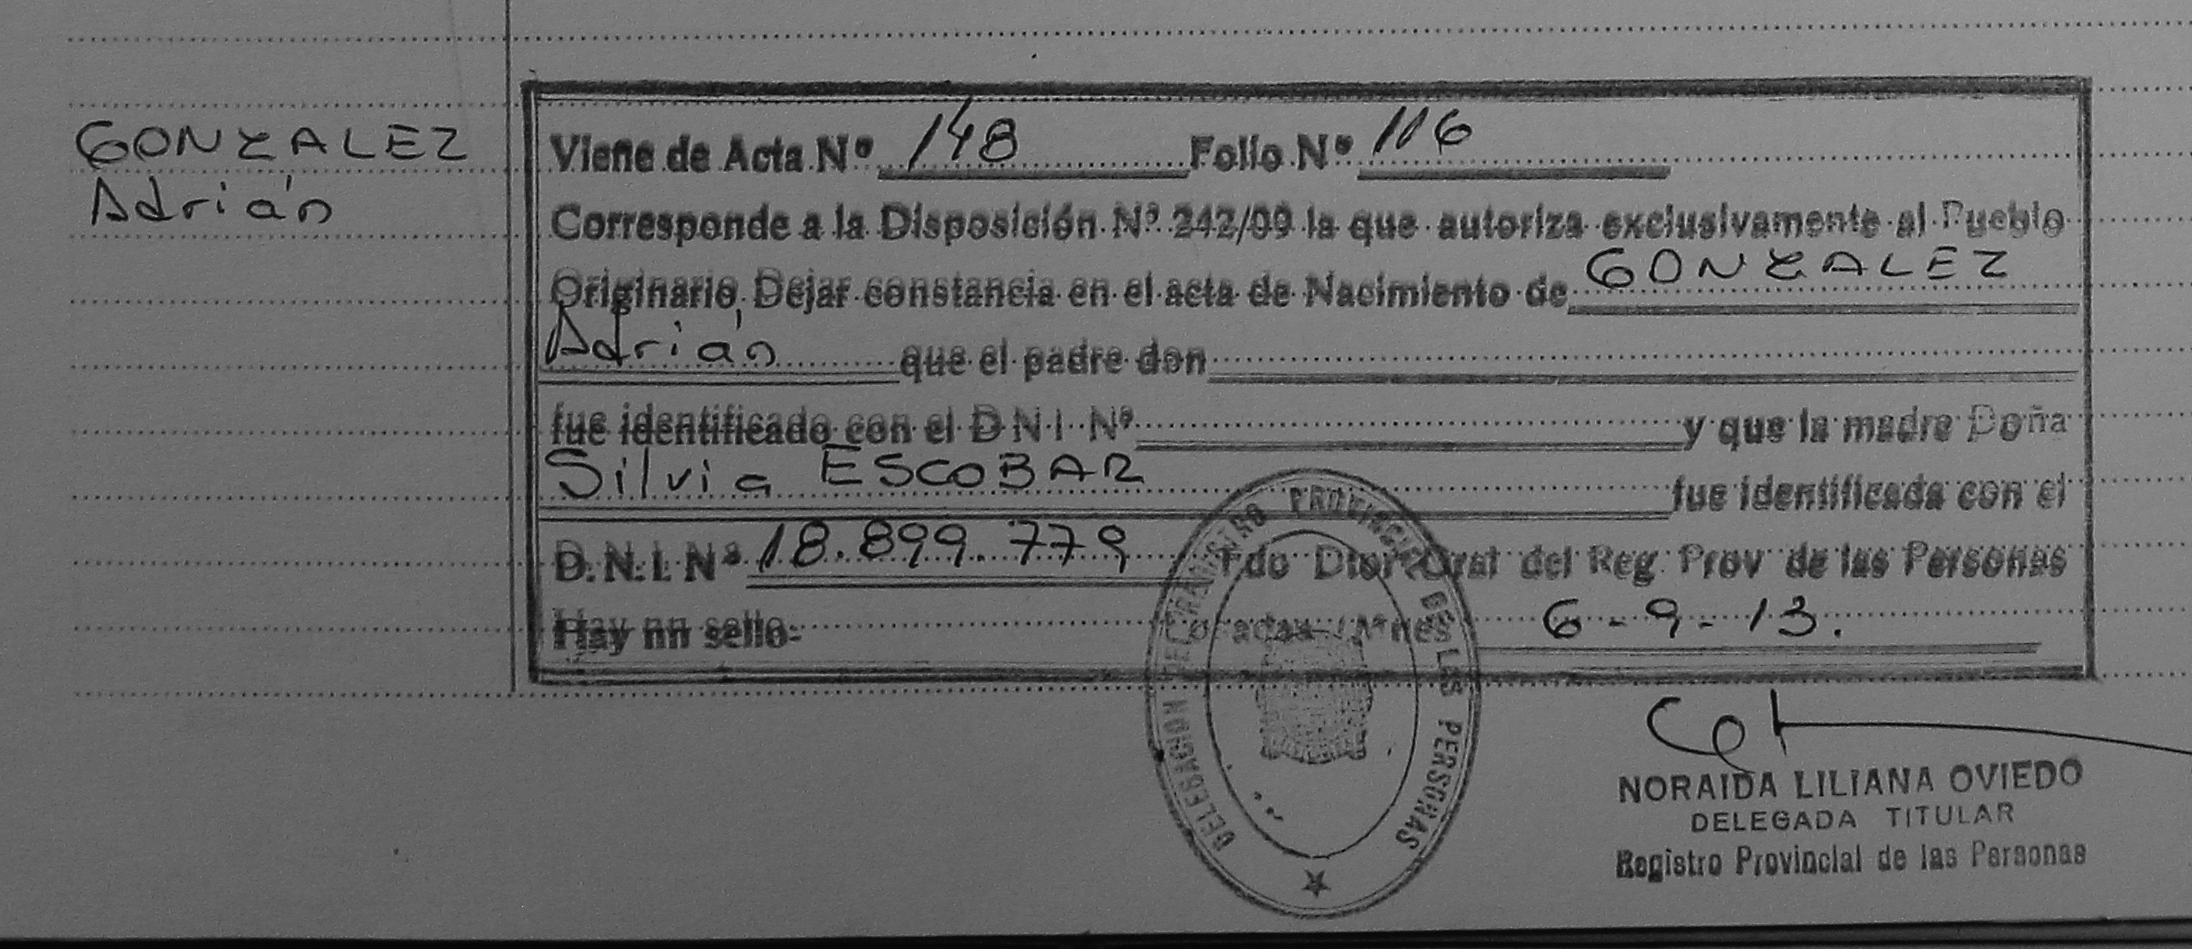 GONZALEZ
Adrián
Viene de Acta Nº 148 Folio Nº 116
Corresponde a la Disposición Nº 242/09 la que autoriza exclusivamente al Pueblo
Originario, Dejar constancia en el acta de Nacimiento de GONZALEZ
Adrián que el padre don
fue identificado con el D N I Nº y que la madre Doña
Silvia ESCOBAR fue identificada con el
D.N.I. Nº 18.899.779 Fdo Dtor Gral del Reg. Prov de las Personas
Hay nn sello- 6-9-13.
DELEGACION REGISTRO PROVINCIAL DE LAS PERSONAS
NORAIDA LILIANA OVIEDO
DELEGADA TITULAR
Registro Provincial de las Personas